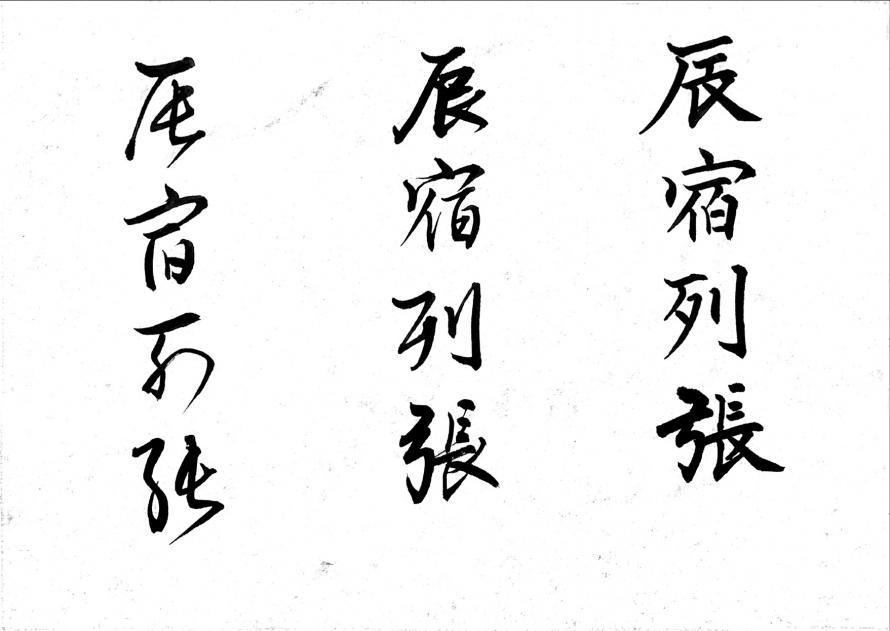 辰宿列張
辰宿列張
辰宿列張